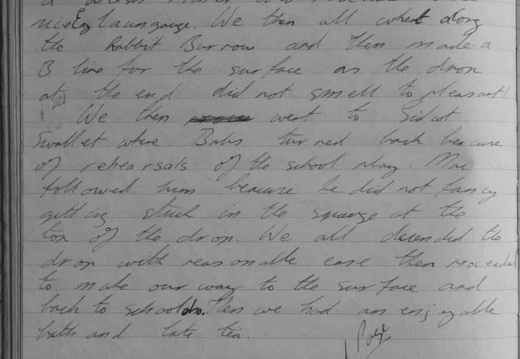 We then all went along
the Rabbit Burrow and then made a
B line for the surface as the dron
at the end did not smell to pleasant!
We then went to Sidcot
Swallet where Babs turned back because
of rehearsals of the school play. Mac
followed him because he did not fancy
getting stuck in the squeeze at the
top of the dron. We all decended the
dron with reasonable ease then proceeded
to make our way to the surface and
back to school. Then we had an enjoyable
bath and late tea.